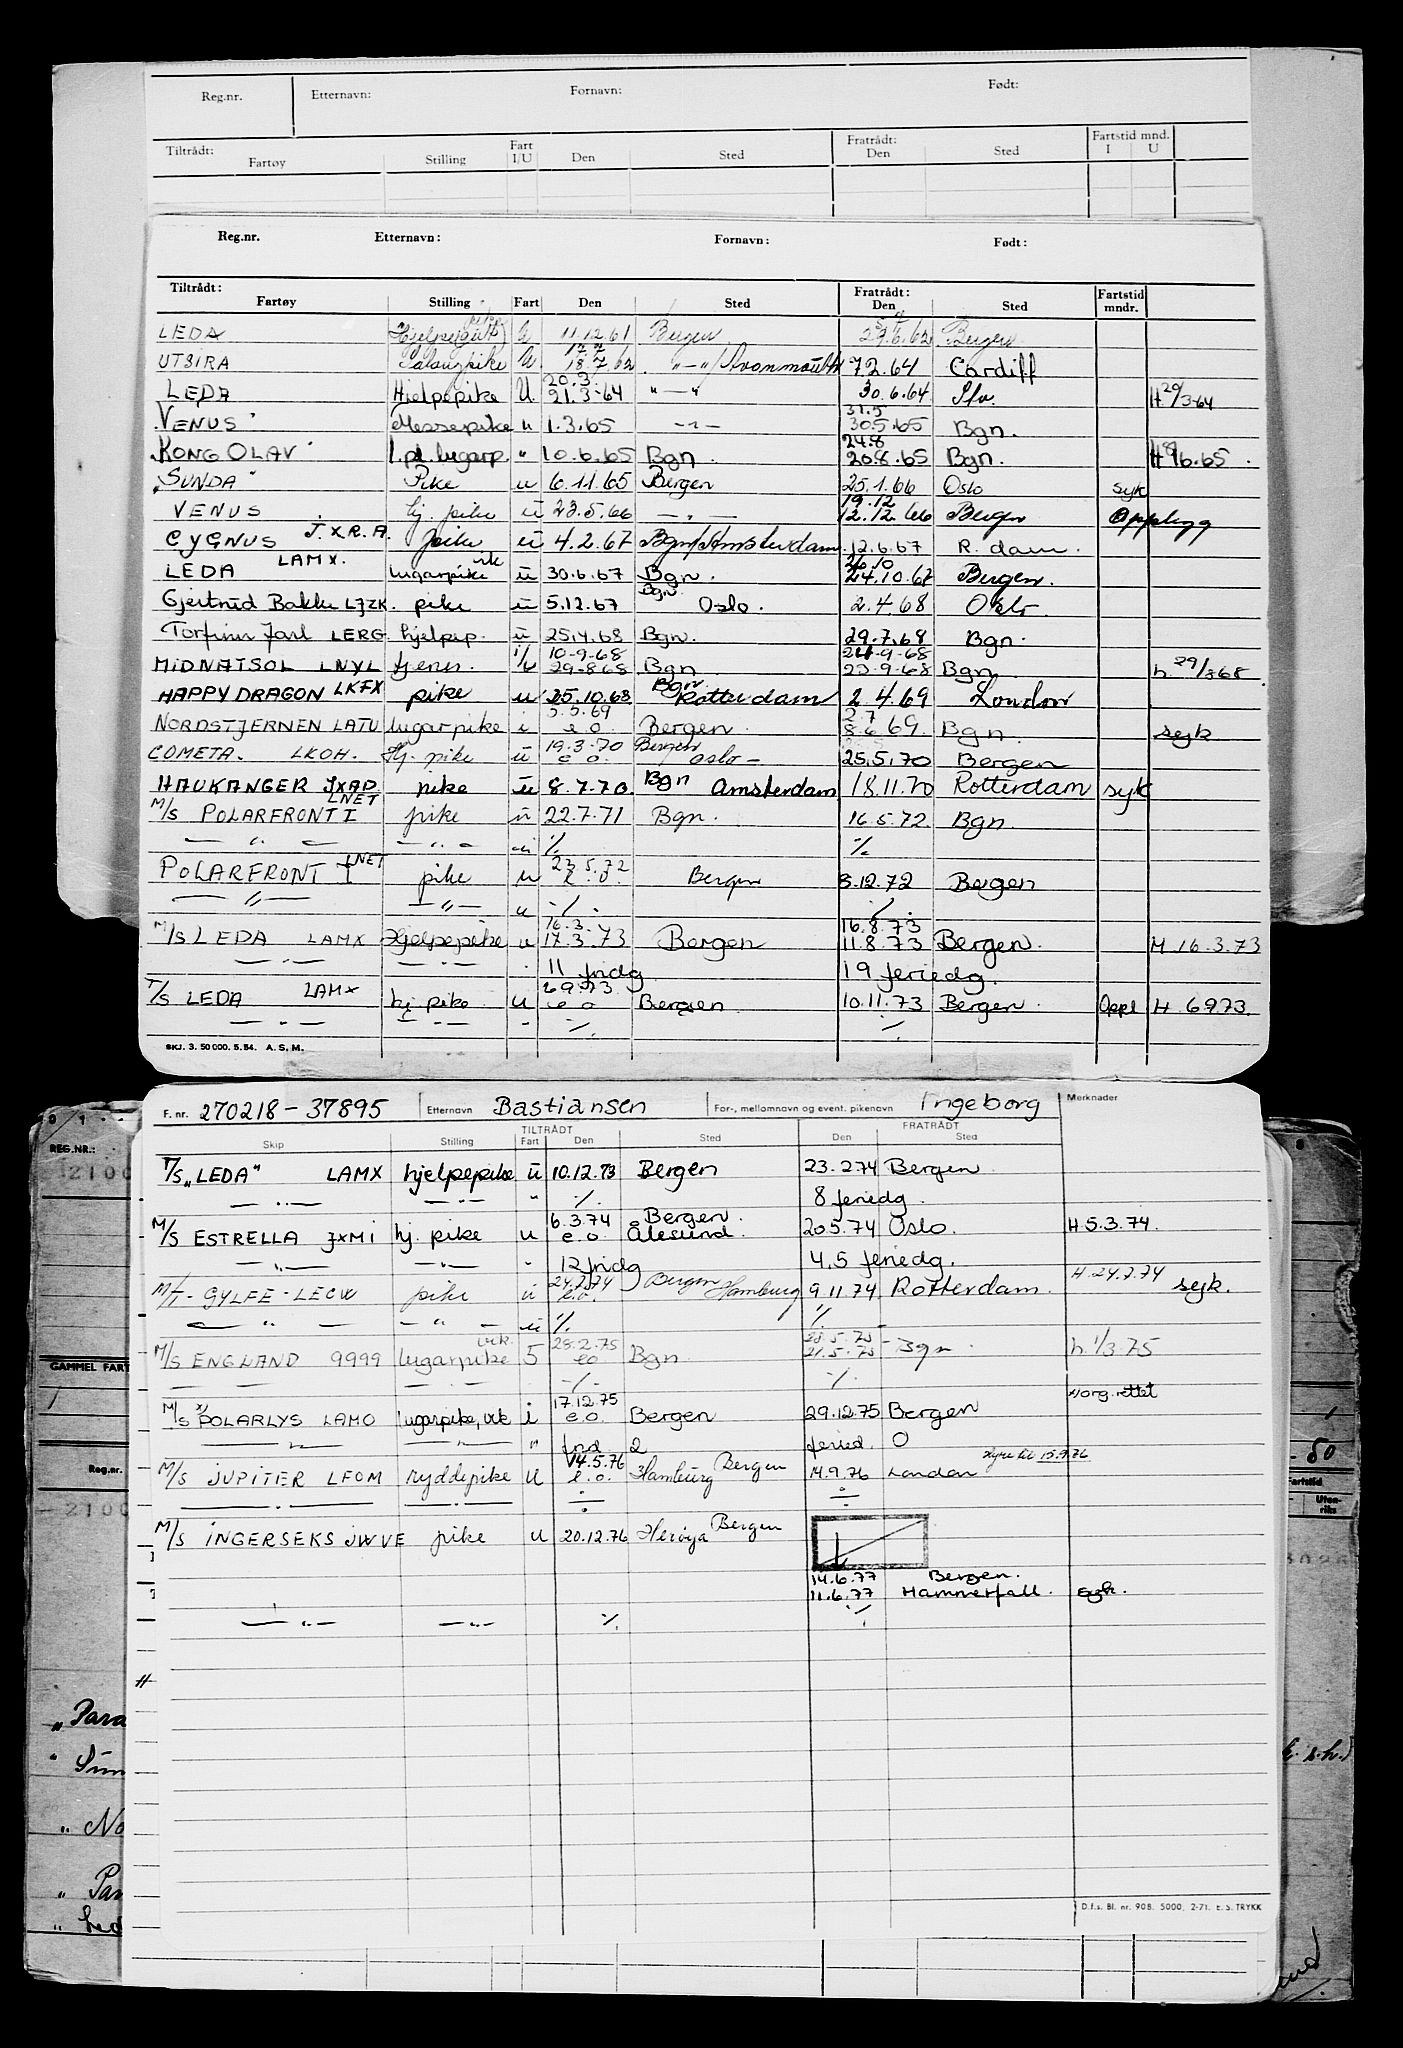 Reg.nr. Etternavn: Fornavn: Født:
Tiltrådt: Fartøy Stilling Fart I/U Den Sted Fratrådt: Den Sted Fartstid mnd. I U
Reg.nr. Etternavn: Fornavn: Født:
Tiltrådt: Fartøy Stilling Fart Den Sted Fratrådt: Den Sted Fartstid mndr.
LEDA U 11.12.61 Bergen Bergen
UTSIRA Salongpike U. 18.7.62 " — " / Avonmouth 7.2.64 Cardiff
20.3.
LEDA Hjelpepike U. 21.3.64 " — " 30.6.64 H 20/3-64
31.5
"VENUS" Messepike u 1.3.65 — " — 30.5.65 Bgn.
24.8
"KONG OLAV" 1.pl. lugarp. " 10.6.65 Bgn. 20.8.65 Bgn.
"SUNDA" Pike u 6.11.65 Bergen 25.1.66 Oslo syk
19.12
VENUS hj. pike u 23.5.66 — " — 12.12.66 Bergen Opplegg
CYGNUS J.X.R.A. pike u 4.2.67 Bgn/Amsterdam 12.6.67 R.dam.
26.10
LEDA LAMX. lugarpike vik u 30.6.67 Bgn. 24.10.67 Bergen.
Gjertrud Bakke LJZK. pike u 5.12.67 Bgn. Oslo. 2.4.68 Oslo
Torfinn Jarl LERG hjelpep. u 25.4.68 Bgn. 29.7.68 Bgn.
10-9-68 24-9-68
MIDNATSOL LNYL tjenes. i/u 29-8-68 Bgn 23-9-68 Bgn. h. 29/8 68
HAPPY DRAGON LKFX pike u 25.10.68 Bgn. Rotterdam 2.4.69 London
5.5.69 2.7
NORDSTJERNEN LATU lugarpike i e.o. Bergen. 8.6 69. Bgn. syk
19.3.70 Bergen
COMETA. LKOH. Hj. pike u e.o. Oslo — 25.5.70 Bergen
HAUKANGER JXAD pike u 8.7.70 Bgn Amsterdam 18.11.70 Rotterdam syk
M/S POLARFRONT I LNET pike u 22.7.71 Bgn. 16.5.72 Bgn.
— " — — " — u ./. ./.
23.5.72
POLARFRONT I LNET pike u e.o. Bergen 8.12.72 Bergen
— " — — " — u ./. ./.
16.3. 16.8.73
M/S LEDA LAMX Hjelpepike u 17.3.73 Bergen 11.8.73 Bergen. H.16.3.73
— " — — " — 11 fridg 19 feriedg.
6.9.73
T/S LEDA LAMX hj. pike u e.o Bergen 10.11.73 Bergen. Oppl H 6.9.73.
— " — — " — ./. ./.
SKJ. 3. 50 000. 5. 54. A. S. M.
F. nr. 270218-37895 Etternavn Bastiansen For-, mellomnavn og event. pikenavn Ingeborg Merknader
TILTRÅDT FRATRÅDT
Skip Stilling Fart Den Sted Den Sted
T/S "LEDA" LAMX hjelpepike u 10.12.73 Bergen 23.2.74 Bergen
— " — — " — " ./. 8 feriedg.
6.3.74 Bergen.
M/S ESTRELLA JXMI hj. pike u e.o. Ålesund. 20.5.74 Oslo. H 5.3.74.
— " — — " — " 12 fridg 4,5 feriedg.
24.7.74 H. 24.7.74
M/T - GYLFE - LECW pike u e.o. Bergen Hamburg 9.11.74 Rotterdam. syk.
— " — — " — u ./. ./.
28.2.75 28.5.75
M/S ENGLAND 9999 lugarpike vik. 5 eo Bgn 21.5.75 Bgn. h. 1/3.75
— — — — ./. ./.
17.12.75 Horg. rettet
M/S POLARLYS LAMO lugarpike, vik i e.o. Bergen 29.12.75 Bergen
— " — — " — " frid. 2 feried. 0
14.5.76 Hyre til 15.9.76
M/S JUPITER LFOM ryddepike u e.o. Hamburg Bergen 14.9.76 London
— " — — " — ÷ ÷
M/S INGERSEKS JWVE pike u 20.12.76 Herøya Bergen
14.6.77 Bergen.
11.6.77 Hammerfall. syk.
— " — — " — ./. ./.
D.f.s. Bl. nr. 908. 5000. 2-71. E. S. TRYKK
REG.NR.:
2100
GAMMEL FART
Reg.nr.
2100
50
Fartstid
Uten-riks
"Para
"Sun
"No
"Par
"Led